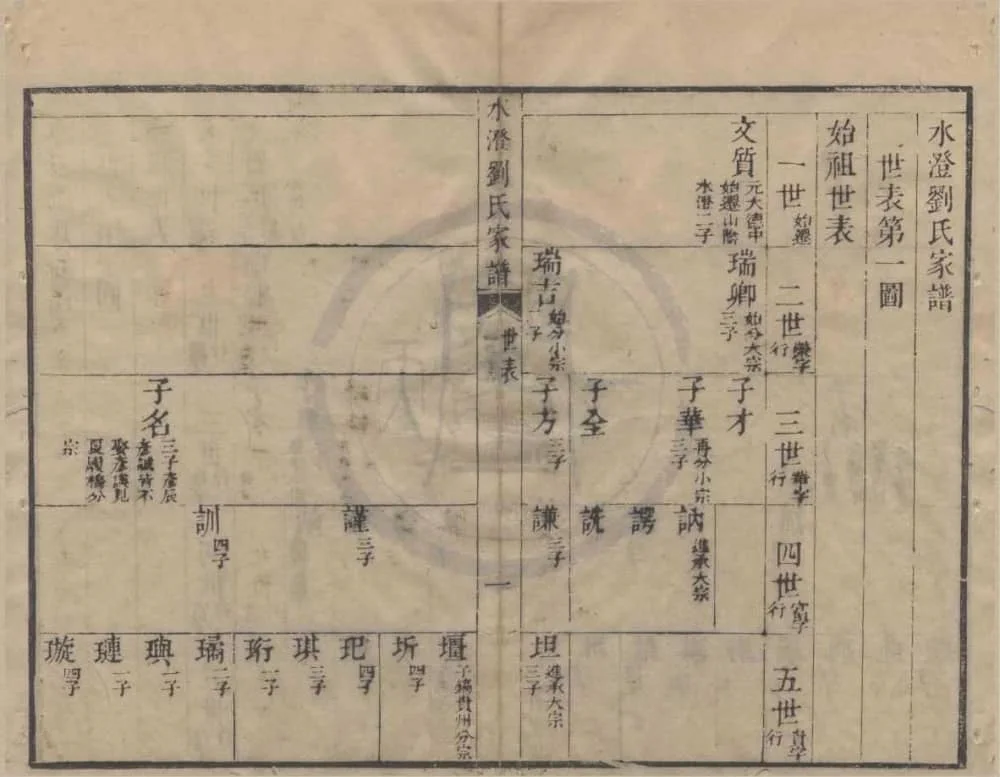 水澄劉氏家譜
世表第一圖
始祖世表
一世 始遷
二世 榮字行
三世 華字行
四世 宮字行
五世 貴字行
文質 元大德中始遷山陰水澄二子
瑞卿 始分大宗三子
瑞吉 始分小宗一子
子才
子華 再分小宗三子
子全
子方 三子
訥 進承大宗
諤
詵
謙 三子
坦 進承大宗三子
水澄劉氏家譜
世表
一
子名 三子彥辰彥誠皆不娶彥洪見夏履橋分宗
謹 三子
訓 四子
壇 子鎬貴州分宗
圻 四子
玘 四子
琪 三子
珩 一子
璊 二子
璵 一子
璉 一子
璇 四子